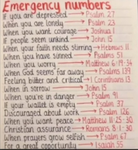 Emergency numbers
If you are depressed → Psalm 27
When you are lonely → Psalm 23
When you want courage → Joshua 1
If people seem unkind → John 15
When your faith needs stirring → Hebrews 11
When you have sinned → Psalm 51
When you worry → Matthew 6:19-34
When God seems far away → Psalm 139
Feeling bitter and critical → 1 Corinthians 13
When in sorrow → John
When you're in danger → Psalm 91
If your wallet is empty → Psalm 37
Discouraged about work → Psalm 126
When you want peace → Matthew 11:25-30
Christian assurance → Romans 8:1-30
When prayers grow selfish → Psalm 67
For a great opportunity → Isaiah 55